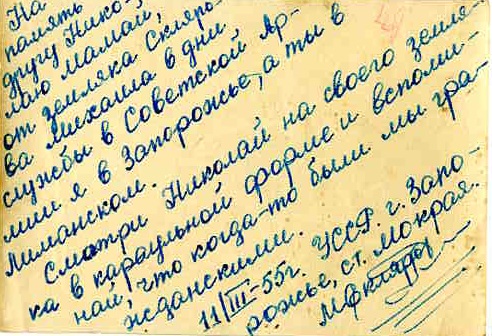 На
память
другу Нико-
лаю Мамай,
от земляка Скляро-
ва Михаила в дни
службы в Советской Ар-
мии я в Запорожье, а ты в
Лиманском.
Смотри Николай на своего земля-
ка в караульной форме и вспоми-
най, что когда-то были мы гра-
жданскими.
11/III-55г. УССР. г. Запо-
рожье, ст. Мокрая.